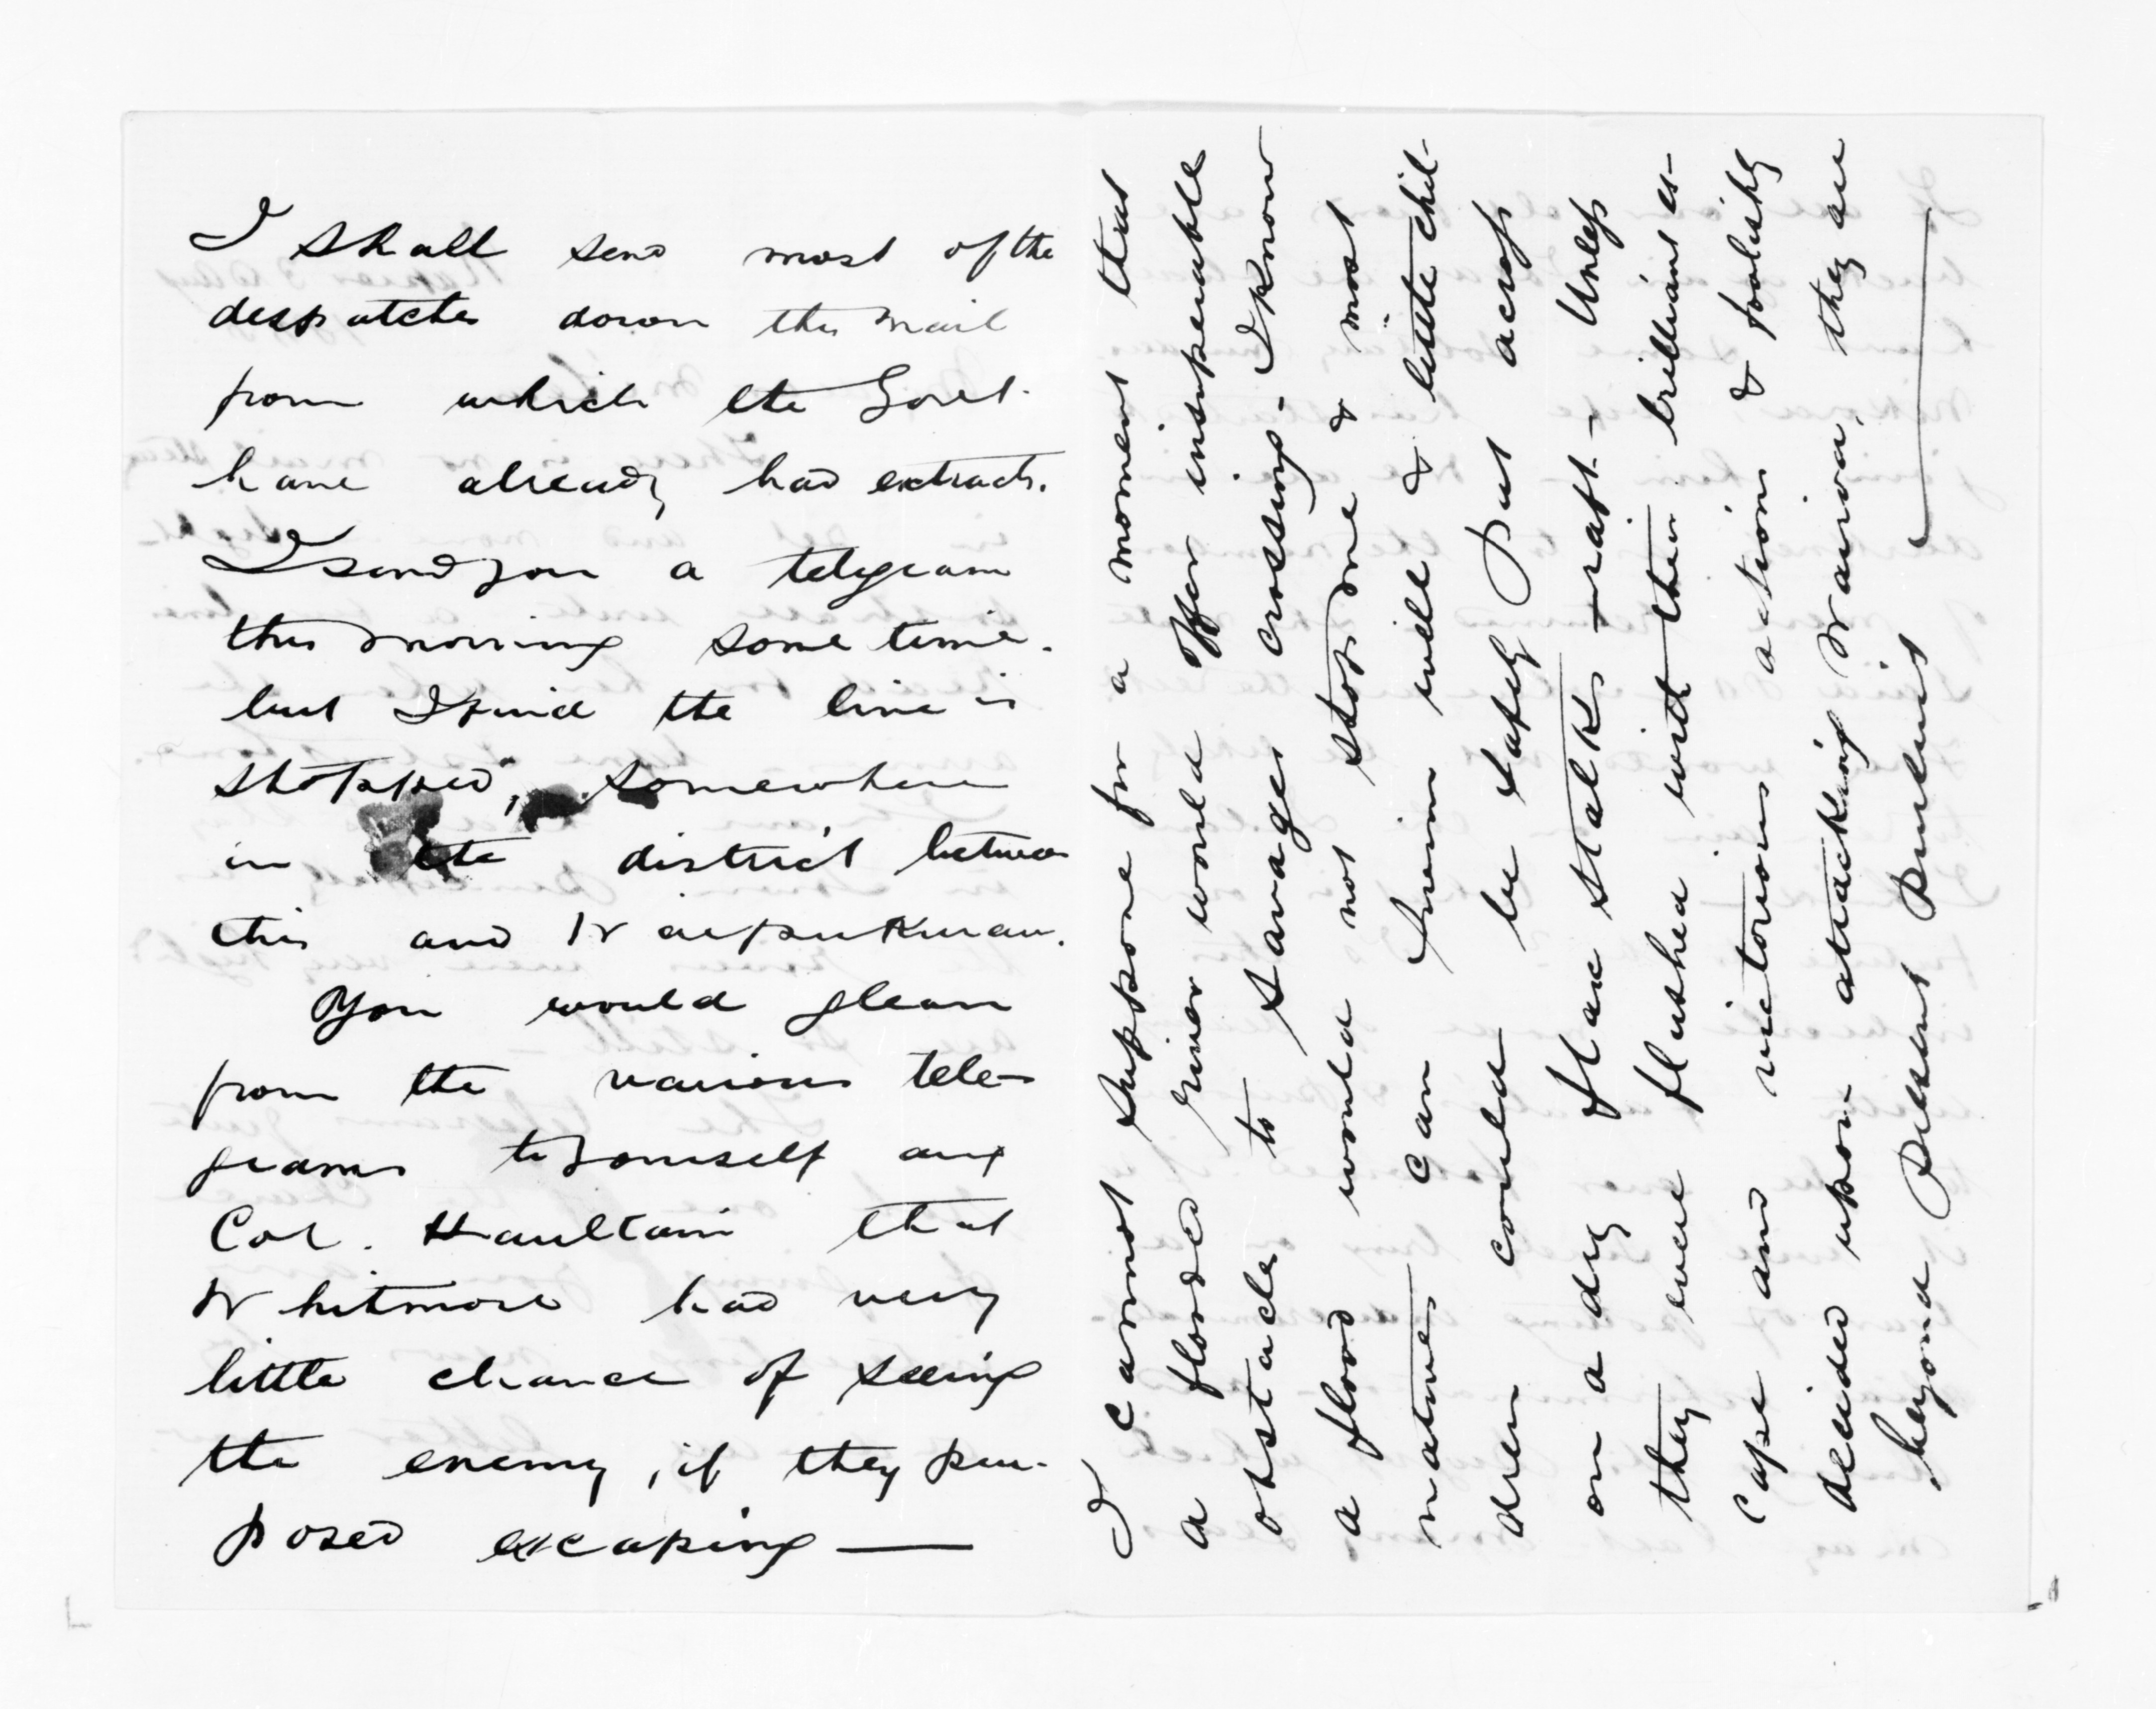 I shall send most of the
despatches down this mail
from which the Govt.
have already had extracts.
I send you a telegram
this morning some time.
but I find the line is
stopped, somewhere
in the district between
this and Waipukurau.
You would glean
from the various tele-
grams to yourself and
Col. Haultain that
Whitmore had very
little chance of seeing
the enemy, if they pur-
posed escaping —
I cannot suppose for a moment that
a flooded river would offer insuperable
obstacles to savages crossing. I know
a flood would not stop me & most
natives can swim well & little chil-
dren could be safely put across
on a dry flax stalks raft — Unless
they were flushed with their brilliant es-
cape and victorious action & foolishly
decided upon attacking Wairoa, they are
beyond present pursuit